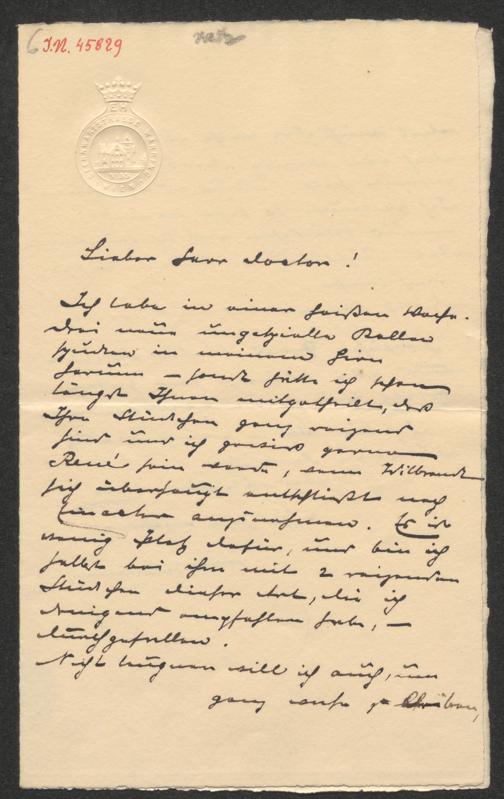 6 I.N. 45829
Lieber Herr Doctor!
Ich lebe in einer heißen Woche.
Drei neue ungespielte Rollen
spuken in meinem Hirn
herum – sonst hätte ich schon
längst Ihnen mitgetheilt, daß
Ihre Stückchen ganz reizend
sind und ich gewiß gerne
René sein werde, wenn Wilbrandt
sich überhaupt entschließt noch
Einacter anzunehmen. Es ist
wenig Platz dafür, und bin ich
selbst bei ihm mit 2 reizenden
Stückchen dieser Art, die ich
dringend empfohlen habe, –
durchgefallen.
Nicht leugnen will ich auch, um
ganz wahr zu bleiben,